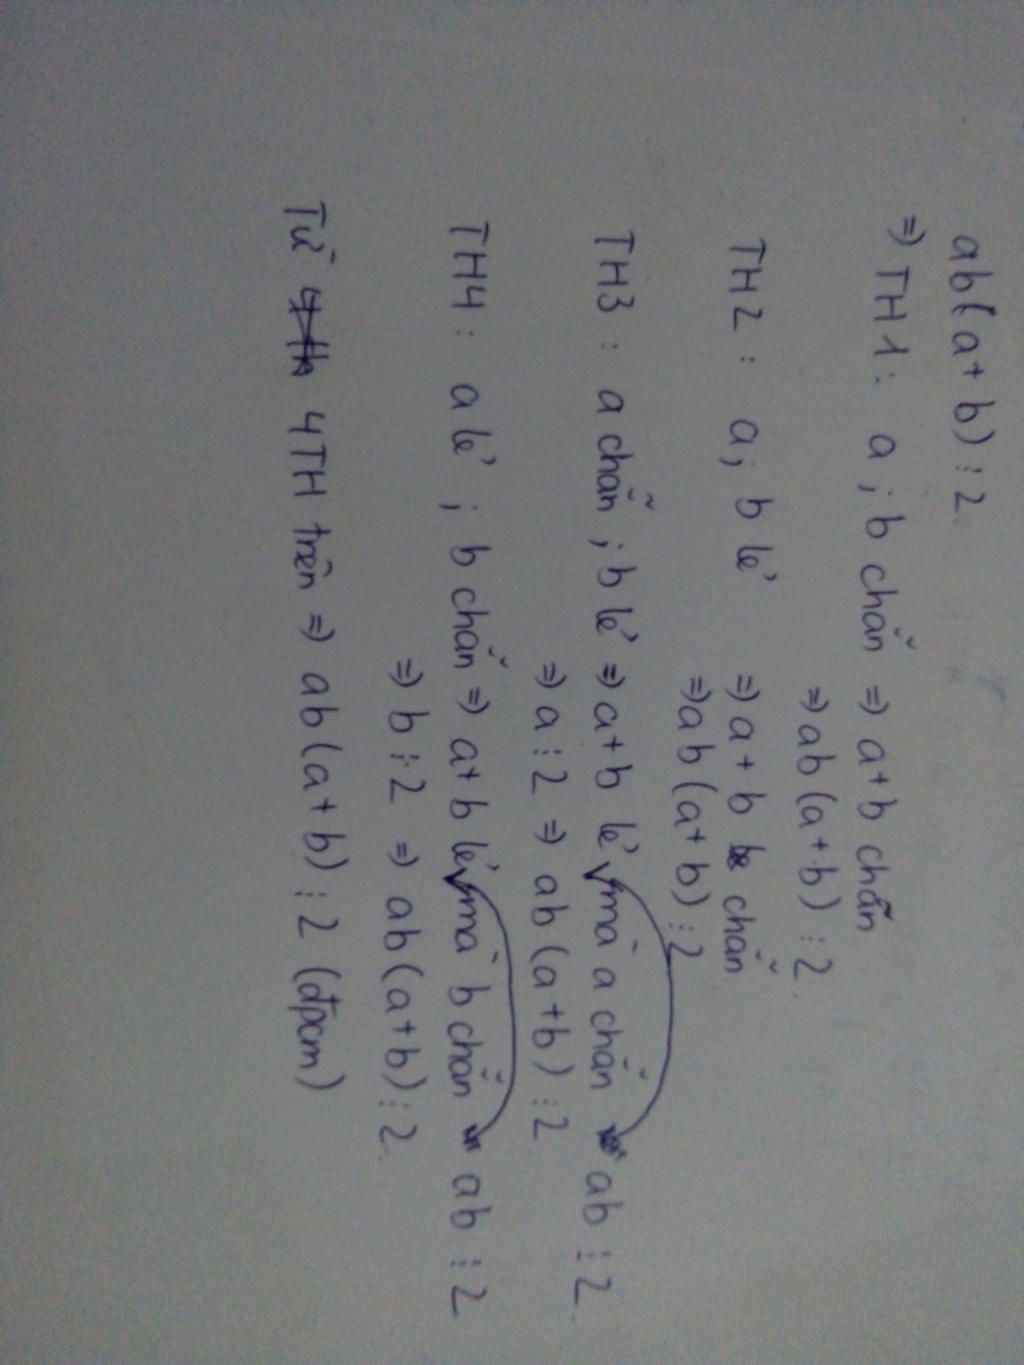 ab(a+b) ⋮ 2
⇒ TH1: a ; b chẵn ⇒ a+b chẵn
⇒ ab(a+b) ⋮ 2
TH2 : a; b lẻ ⇒ a+b chẵn
⇒ ab(a+b) ⋮ 2
TH3 : a chẵn ; b lẻ ⇒ a+b lẻ mà a chẵn ab ⋮ 2
⇒ a ⋮ 2 ⇒ ab(a+b) ⋮ 2
TH4 : a lẻ ; b chẵn ⇒ a+b lẻ mà b chẵn ab ⋮ 2
⇒ b ⋮ 2 ⇒ ab(a+b) ⋮ 2
Từ 4TH trên ⇒ ab(a+b) ⋮ 2 (đpcm)